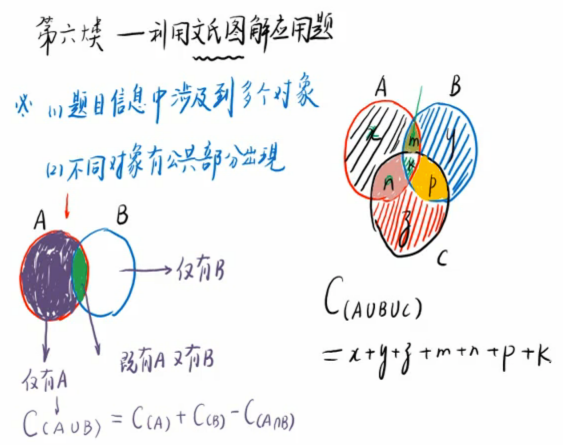 第六类 — 利用文氏图解应用题
※ (1) 题目信息中涉及到多个对象
(2) 不同对象有公共部分出现
A B
仅有B
既有A又有B
仅有A
C(A∪B) = C(A) + C(B) - C(A∩B)
A B
x m y
k
n p
z
C
C(A∪B∪C)
= x+y+z+m+n+p+k